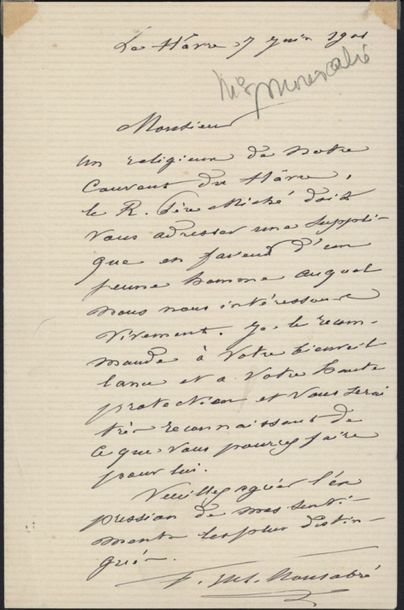 Le Hâvre 7 juin 1901
Monsieur
Un religieux de notre
Couvent du Hâvre,
le R. Père Miché doit
vous adresser une suppli-
que en faveur d'un
jeune homme auquel
nous nous intéressons
vivement. Je le recom-
mande à votre bienveil
lance et à votre haute
protection et vous serai
très reconnaissant de
ce que vous pourrez faire
pour lui.
Veuillez agréer l'ex
pression de mes senti-
ments les plus distin-
gués.
F. M. L. Monsabré